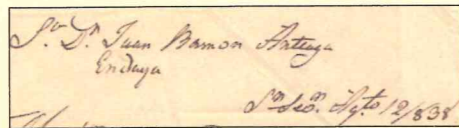 Sr Dn Juan Ramon Arteaga
Endaya
Sn Sebn Agto 12/838